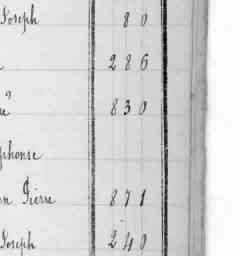 Joseph 80
286
830
phonse
n Pierre 871
Joseph 240